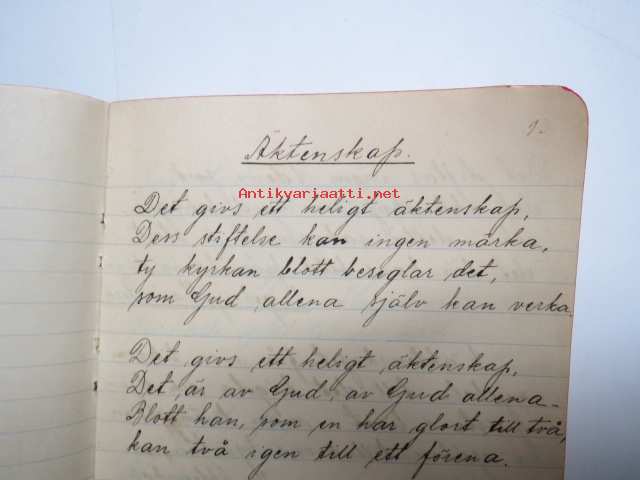 9.
Äktenskap.
Antikvariaatti.net
Det givs ett heligt äktenskap,
Dess stiftelse kan ingen märka,
ty kyrkan blott beseglar det,
som Gud allena själv kan verka.
Det givs ett heligt äktenskap,
Det är av Gud, av Gud allena –
Blott han, som en har gjort till två,
kan två igen till ett förena.